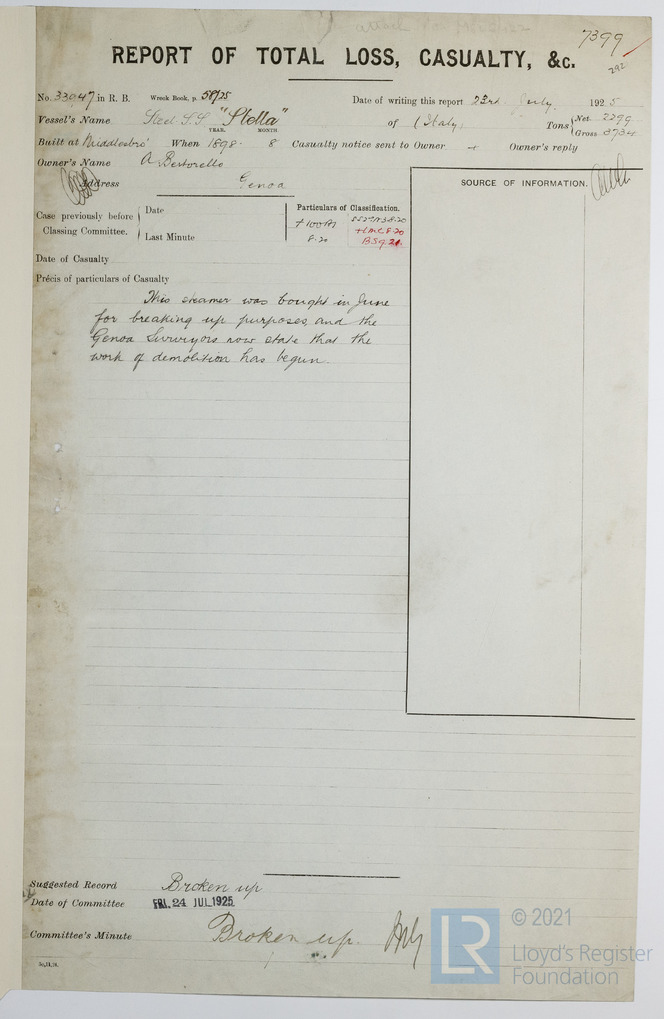 7399
292
REPORT OF TOTAL LOSS, CASUALTY, &c.
No. 33047 in R. B. Wreck Book, p. 58/25 Date of writing this report 23rd July 1925
Vessel's Name Steel S.S. "Stella" of (Italy) Tons { Net 2299 Gross 3734
YEAR. MONTH
Built at Middlesbro' When 1898 . 8 Casualty notice sent to Owner + Owner's reply
Owner's Name A Bertorello
Address Genoa
SOURCE OF INFORMATION.
Case previously before Classing Committee. { Date
Last Minute
Particulars of Classification.
+100A1
8.20
+LMC 8.20
BS 9.21
Date of Casualty
Précis of particulars of Casualty
This steamer was bought in June
for breaking up purposes, and the
Genoa Surveyors now state that the
work of demolition has begun.
Suggested Record Broken up
Date of Committee FRI. 24 JUL 1925
Committee's Minute Broken up.
LR
© 2021
Lloyd's Register
Foundation